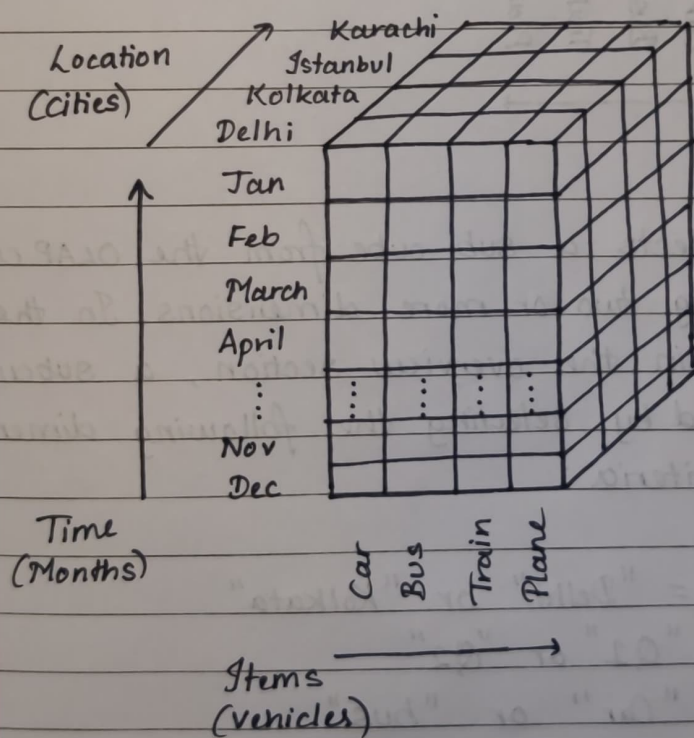 Karachi
Location
(cities)
Istanbul
Kolkata
Delhi
Jan
Feb
March
April
Nov
Dec
Time
(Months)
Car
Bus
Train
Plane
Items
(vehicles)